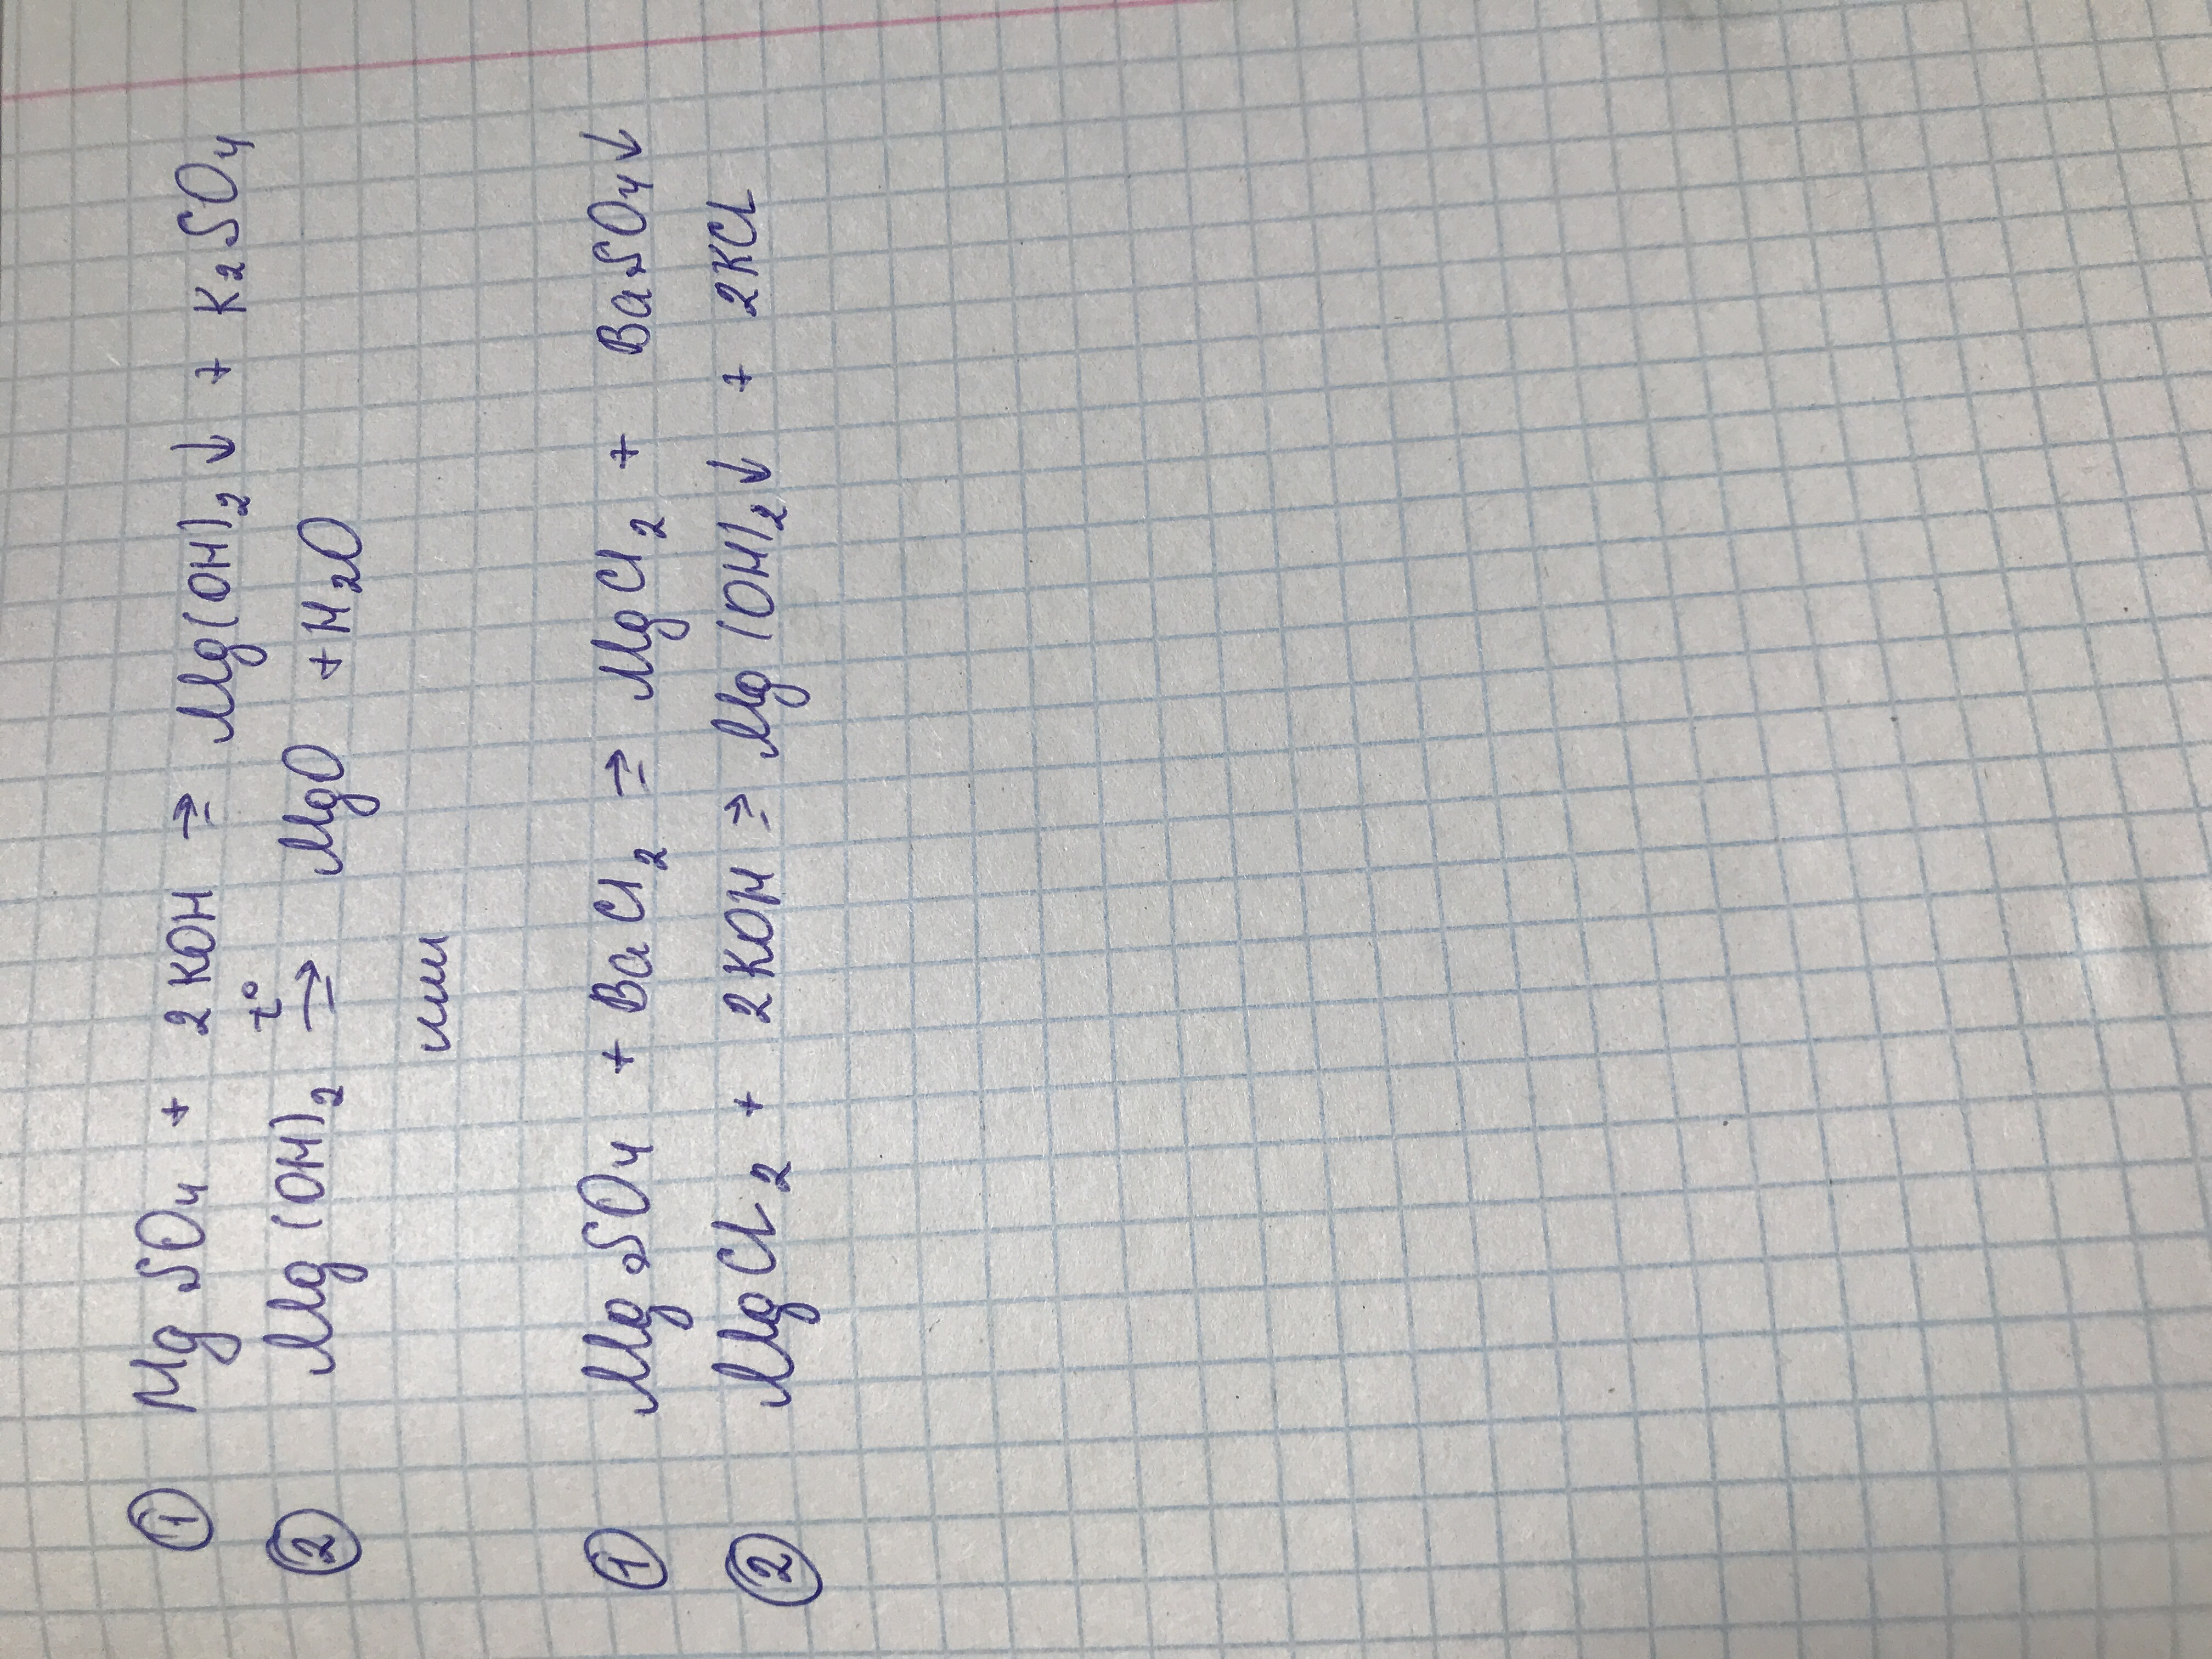 ① MgSO₄ + 2KOH ⇒ Mg(OH)₂↓ + K₂SO₄
② Mg(OH)₂ t°⇒ MgO + H₂O
или
① MgSO₄ + BaCl₂ ⇒ MgCl₂ + BaSO₄↓
② MgCl₂ + 2KOH ⇒ Mg(OH)₂↓ + 2KCl